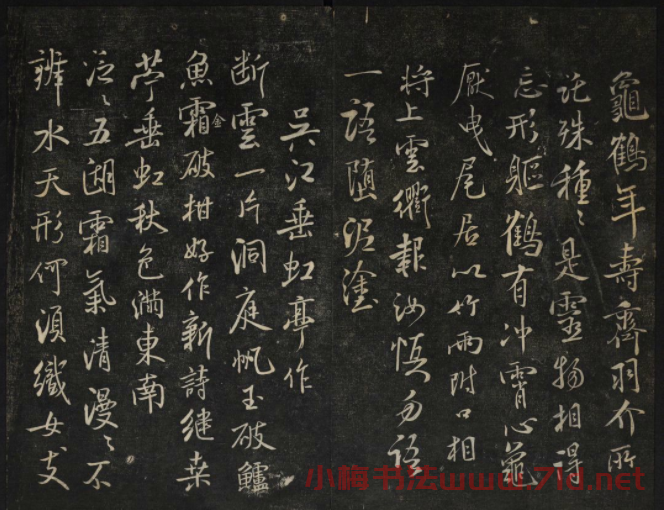 龜鶴年壽齊羽介所
託殊種〻是靈物相得
忘形軀鶴有沖霄心龜
厭曳尾居以竹兩附口相
將上雲衢報汝慎勿語
一語墮泥塗
吳江垂虹亭作
断雲一片洞庭帆玉破鱸
魚霜金破柑好作新詩继桒
苧垂虹秋色滿東南
泛〻五湖霜氣清漫〻不
辨水天形何須織女支
小梅书法www.7ld.net